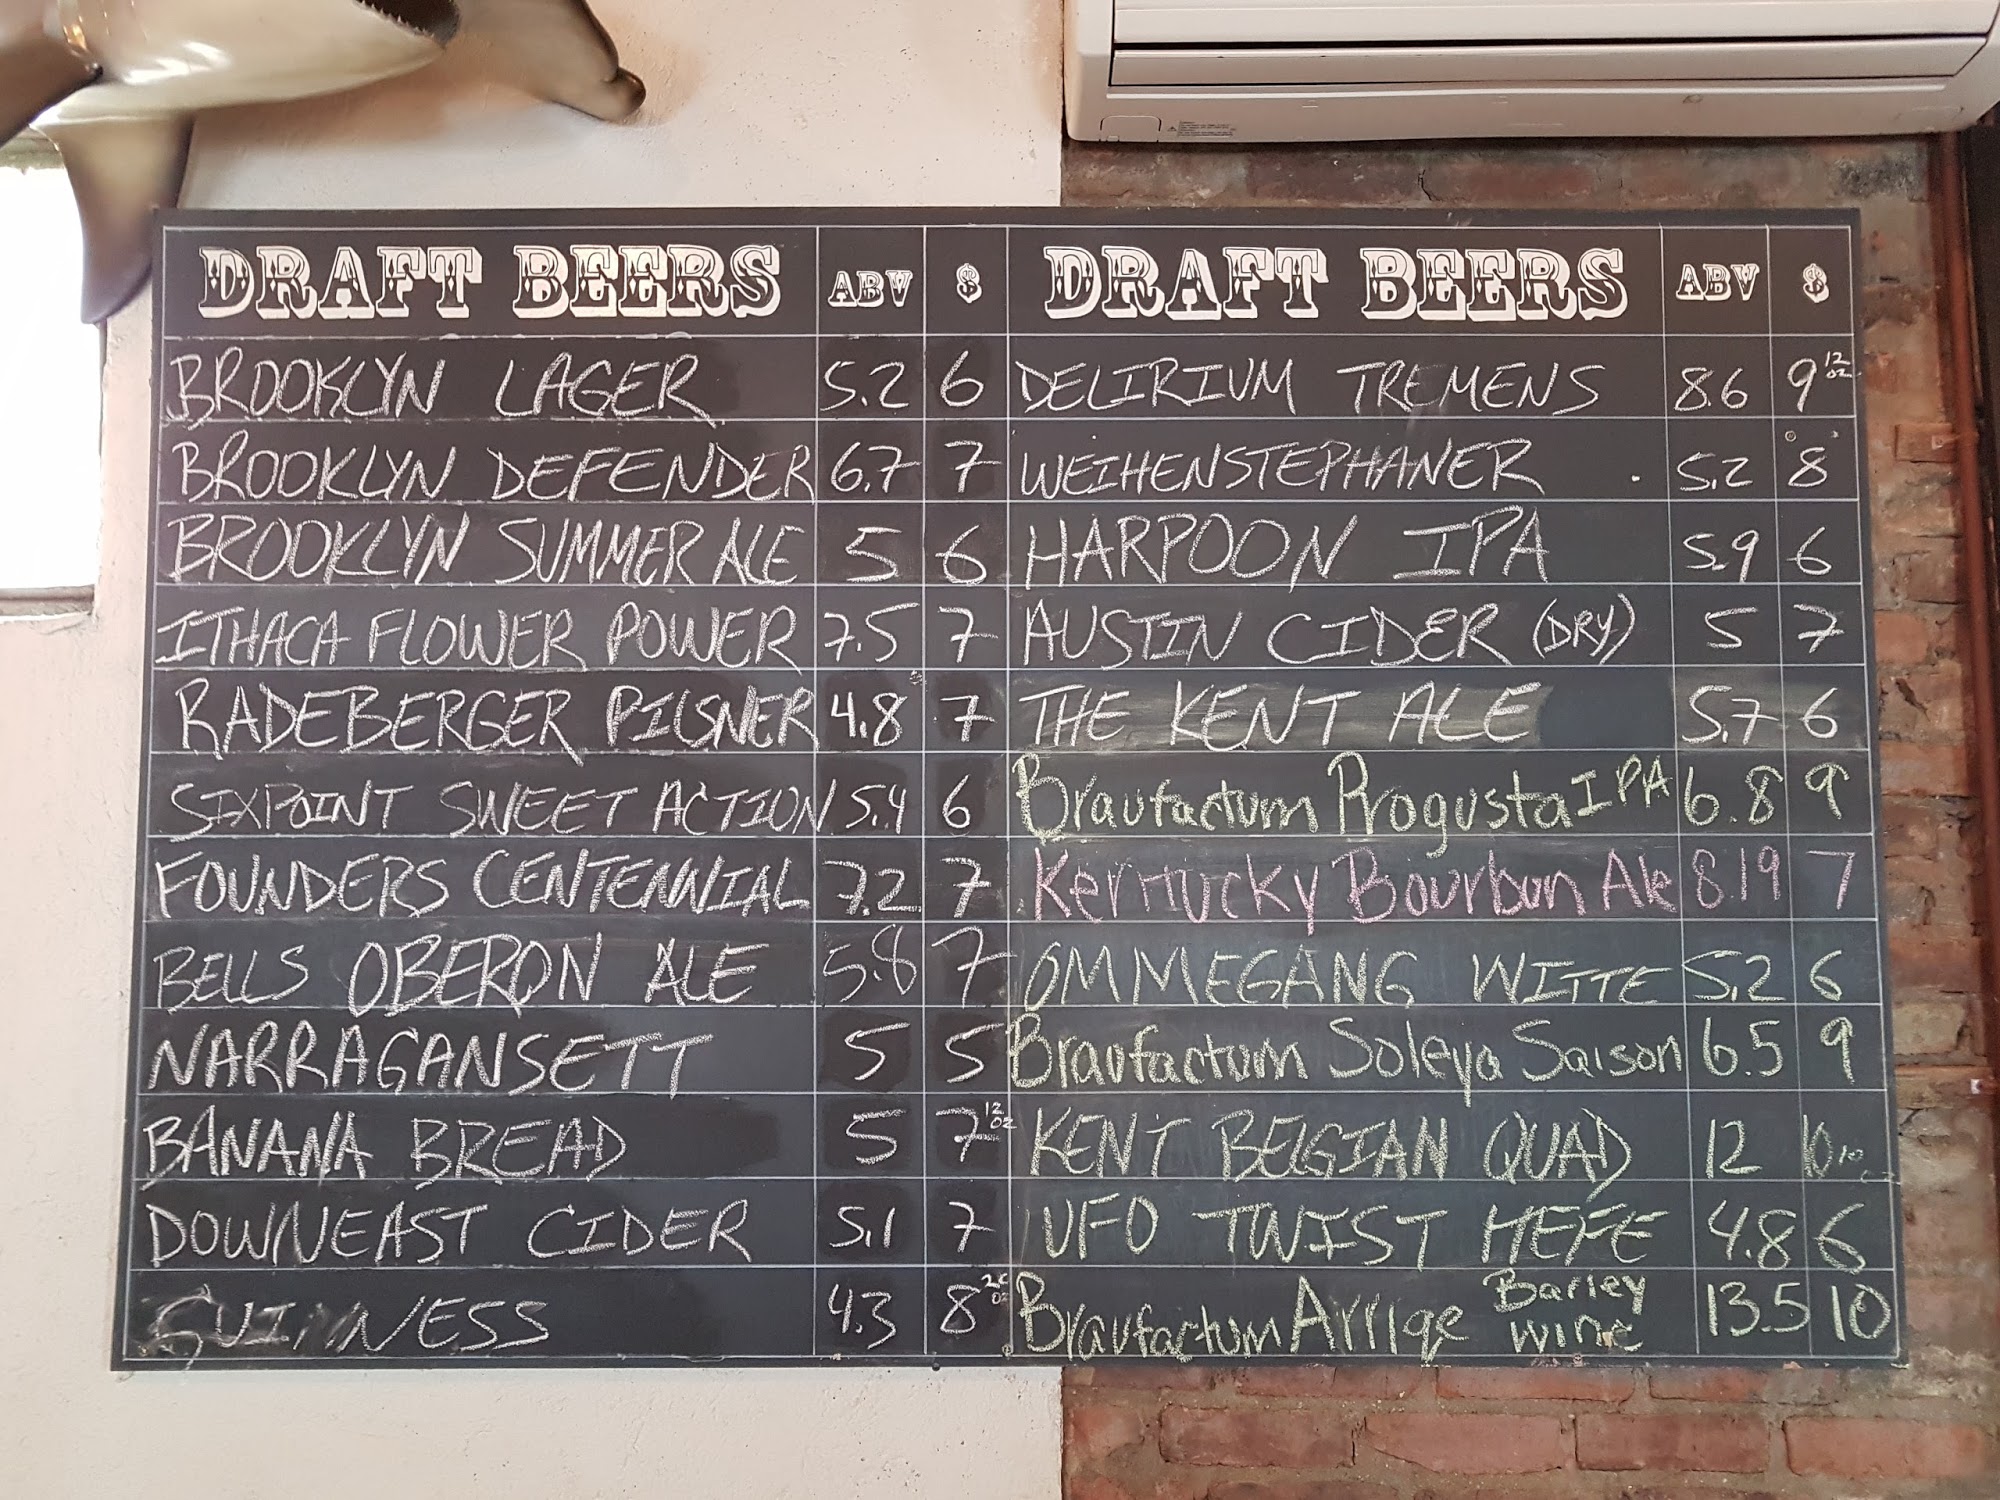 DRAFT BEERS ABV $
BROOKLYN LAGER 5.2 6
BROOKLYN DEFENDER 6.7 7
BROOKLYN SUMMER ALE 5 6
ITHACA FLOWER POWER 7.5 7
RADEBERGER PILSNER 4.8 7
SIXPOINT SWEET ACTION 5.4 6
FOUNDERS CENTENNIAL 7.2 7
BELLS OBERON ALE 5.8 7
NARRAGANSETT 5 5
BANANA BREAD 5 7 12 OZ
DOWNEAST CIDER 5.1 7
GUINNESS 4.3 8 20 OZ
DRAFT BEERS ABV $
DELIRIUM TREMENS 8.6 9 12 OZ
WEIHENSTEPHANER 5.2 8
HARPOON IPA 5.9 6
AUSTIN CIDER (DRY) 5 7
THE KENT ALE 5.7 6
Braufactum Progusta IPA 6.8 9
Kentucky Bourbon Ale 8.19 7
OMMEGANG WITTE 5.2 6
Braufactum Soleya Saison 6.5 9
KENT BELGIAN QUAD 12 10
UFO TWIST HEFE 4.8 6
Braufactum Arrique Barley Wine 13.5 10